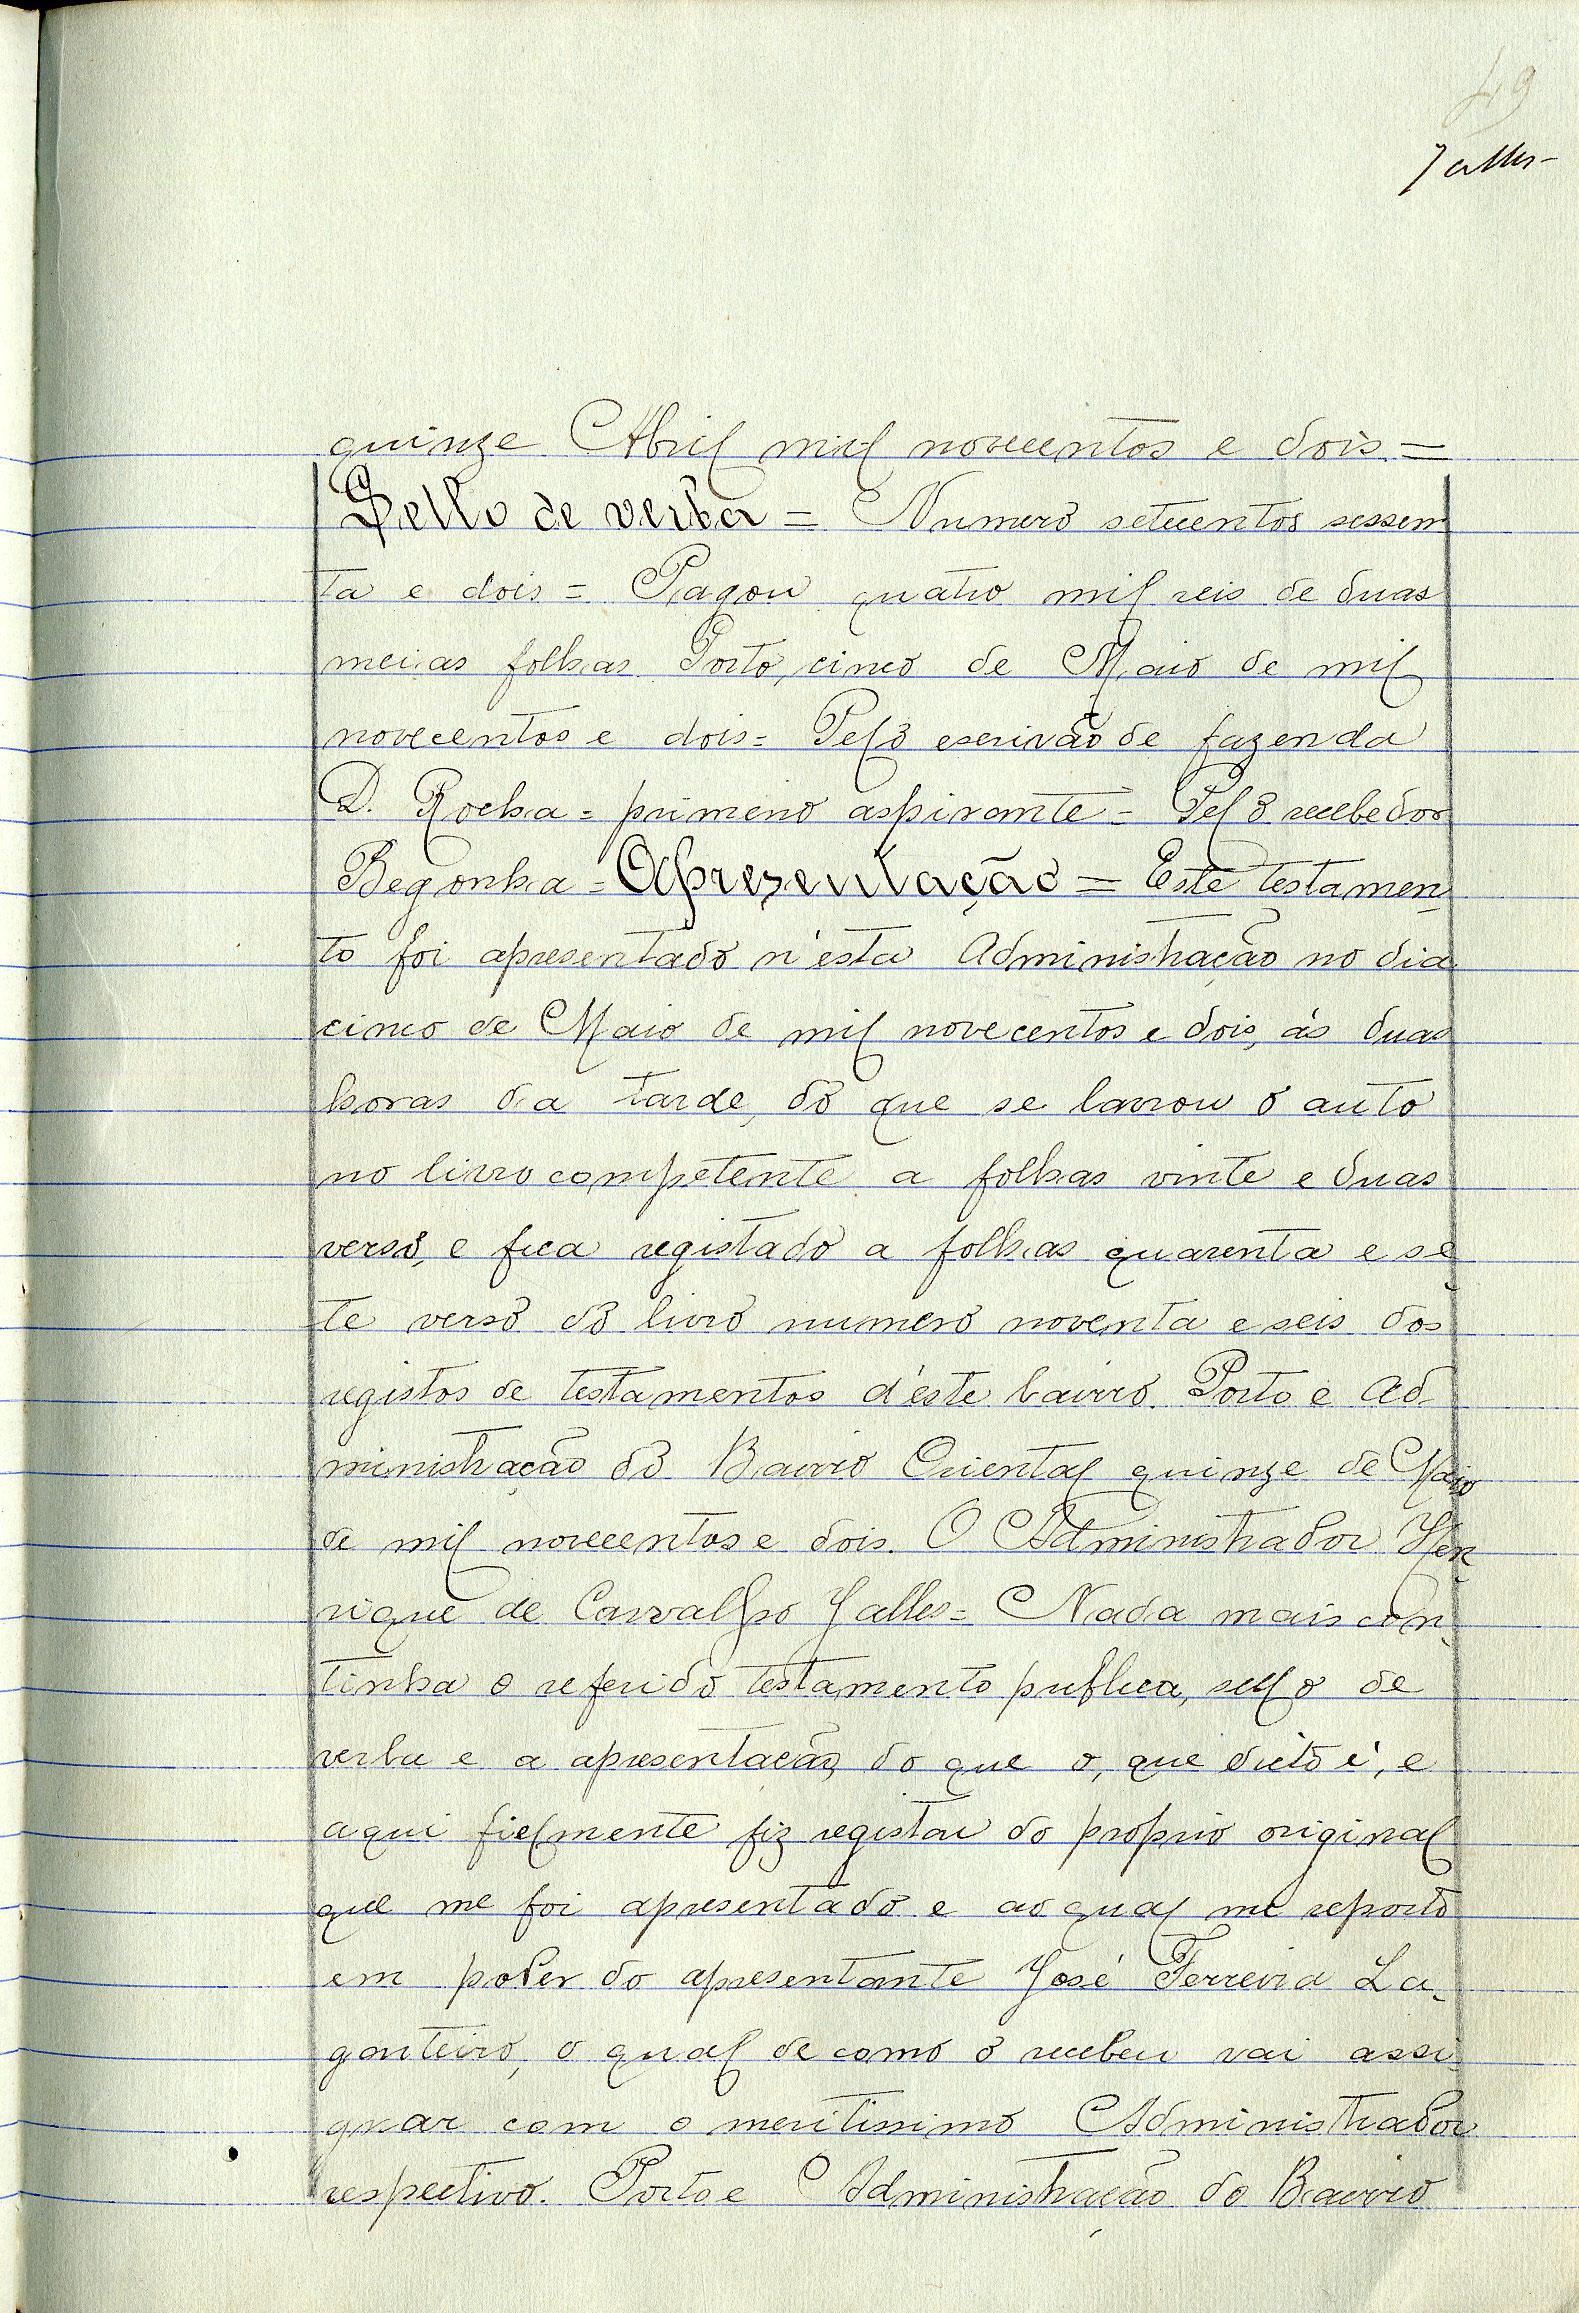 49
Jalles
quinze Abril mil novecentos e dois =
Sello de verba = Numero setecentos sessen
ta e dois = Pagou quatro mil reis de duas
meias folhas. Porto, cinco de Maio de mil
novecentos e dois = Pelo escrivão de fazenda
D. Rocha = primeiro aspirante = Pelo recebedor
Begonha = Apresentação = Este testamen-
to foi apresentado n'esta Administração no dia
cinco de Maio de mil novecentos e dois, ás duas
horas da tarde, do que se lavrou o auto
no livro competente a folhas vinte e duas
verso, e fica registado a folhas quarenta e se-
te verso do livro numero noventa e seis dos
registos de testamentos d'este bairro. Porto e Ad-
ministração do Bairro Oriental quinze de Maio
de mil novecentos e dois. O Administrador Hen-
rique de Carvalho Jalles = Nada mais con-
tinha o referido testamento publica, sello de
verba e a apresentação do que o, que dicto é, e
aqui fielmente fiz registar do proprio original
que me foi apresentado e ao qual me reporto
em poder do apresentante José Ferreira La-
gonteiro, o qual de como o recebeu vai assi-
gnar com o meritissimo Administrador
respectivo. Porto e Administração do Bairro